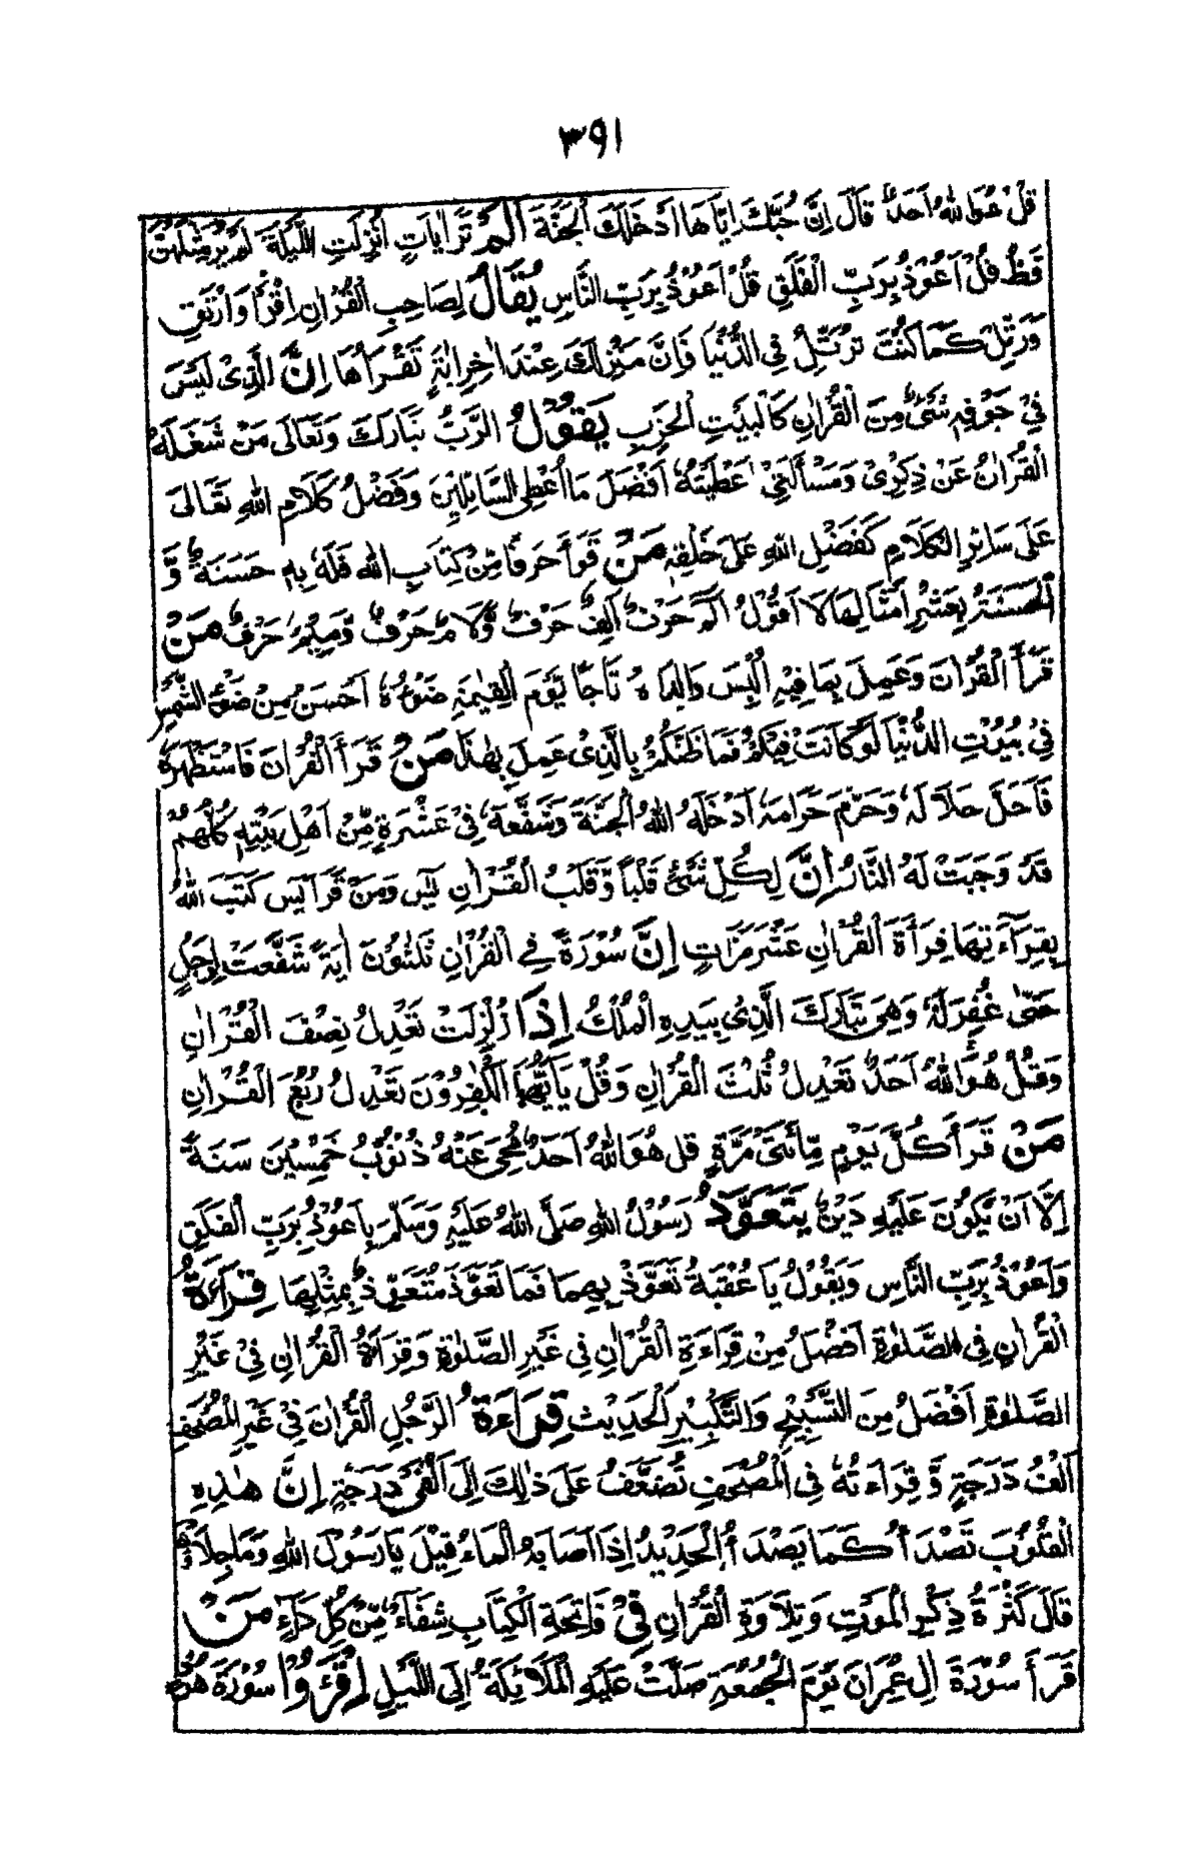 ٣٩١
قُلْ هُوَ اللّٰهُ اَحَدٌ قَالَ اِنَّ حُبَّكَ اِيَّاهَا اَدْخَلَكَ الْجَنَّةَ اَلَمْ تَرَ اٰيَاتٍ اُنْزِلَتِ اللَّيْلَةَ لَمْ يُرَ مِثْلُهُنَّ
قَطُّ قُلْ اَعُوْذُ بِرَبِّ الْفَلَقِ قُلْ اَعُوْذُ بِرَبِّ النَّاسِ يُقَالُ لِصَاحِبِ الْقُرْاٰنِ اِقْرَأْ وَارْتَقِ
وَرَتِّلْ كَمَا كُنْتَ تُرَتِّلُ فِي الدُّنْيَا فَاِنَّ مَنْزِلَكَ عِنْدَ اٰخِرِ اٰيَةٍ تَقْرَأُهَا اِنَّ الَّذِيْ لَيْسَ
فِيْ جَوْفِهٖ شَيْءٌ مِنَ الْقُرْاٰنِ كَالْبَيْتِ الْخَرِبِ يَقُوْلُ الرَّبُّ تَبَارَكَ وَتَعَالٰى مَنْ شَغَلَهُ
الْقُرْاٰنُ عَنْ ذِكْرِيْ وَمَسْأَلَتِيْ اَعْطَيْتُهٗ اَفْضَلَ مَا اُعْطِي السَّائِلِيْنَ وَفَضْلُ كَلَامِ اللّٰهِ تَعَالٰى
عَلٰى سَائِرِ الْكَلَامِ كَفَضْلِ اللّٰهِ عَلٰى خَلْقِهٖ مَنْ قَرَأَ حَرْفًا مِّنْ كِتَابِ اللّٰهِ فَلَهٗ بِهٖ حَسَنَةٌ وَّ
الْحَسَنَةُ بِعَشْرِ اَمْثَالِهَا لَا اَقُوْلُ الٓمٓ حَرْفٌ اَلِفٌ حَرْفٌ وَّلَامٌ حَرْفٌ وَّمِيْمٌ حَرْفٌ مَنْ
قَرَأَ الْقُرْاٰنَ وَعَمِلَ بِمَا فِيْهِ اُلْبِسَ وَالِدَاهُ تَاجًا يَّوْمَ الْقِيٰمَةِ ضَوْءُهٗ اَحْسَنُ مِنْ ضَوْءِ الشَّمْسِ
فِيْ بُيُوْتِ الدُّنْيَا لَوْ كَانَتْ فِيْكُمْ فَمَا ظَنُّكُمْ بِالَّذِيْ عَمِلَ بِهٰذَا مَنْ قَرَأَ الْقُرْاٰنَ فَاسْتَظْهَرَهٗ
فَاَحَلَّ حَلَالَهٗ وَحَرَّمَ حَرَامَهٗ اَدْخَلَهُ اللّٰهُ الْجَنَّةَ وَشَفَّعَهٗ فِيْ عَشْرَةٍ مِّنْ اَهْلِ بَيْتِهٖ كُلُّهُمْ
قَدْ وَجَبَتْ لَهُ النَّارُ اِنَّ لِكُلِّ شَيْءٍ قَلْبًا وَّقَلْبُ الْقُرْاٰنِ يٰسٓ وَمَنْ قَرَأَ يٰسٓ كَتَبَ اللّٰهُ
بِقِرَآءَتِهَا قِرَأَةَ الْقُرْاٰنِ عَشْرَ مَرَّاتٍ اِنَّ سُوْرَةً فِي الْقُرْاٰنِ ثَلٰثُوْنَ اٰيَةً شَفَّعَتْ لِرَجُلٍ
حَتّٰى غُفِرَ لَهٗ وَهِيَ تَبَارَكَ الَّذِيْ بِيَدِهِ الْمُلْكُ اِذَا زُلْزِلَتْ تَعْدِلُ نِصْفَ الْقُرْاٰنِ
وَقُلْ هُوَ اللّٰهُ اَحَدٌ تَعْدِلُ ثُلُثَ الْقُرْاٰنِ وَقُلْ يٰۤاَيُّهَا الْكٰفِرُوْنَ تَعْدِلُ رُبُعَ الْقُرْاٰنِ
مَنْ قَرَأَ كُلَّ يَوْمٍ مِّائَتَيْ مَرَّةٍ قُلْ هُوَ اللّٰهُ اَحَدٌ مُحِيَ عَنْهُ ذُنُوْبُ خَمْسِيْنَ سَنَةً
اِلَّا اَنْ يَّكُوْنَ عَلَيْهِ دَيْنٌ يَتَعَوَّذُ رَسُوْلُ اللّٰهِ صَلَّى اللّٰهُ عَلَيْهِ وَسَلَّمَ بِاَعُوْذُ بِرَبِّ الْفَلَقِ
وَاَعُوْذُ بِرَبِّ النَّاسِ وَيَقُوْلُ يَا عُقْبَةُ تَعَوَّذْ بِهِمَا فَمَا تَعَوَّذَ مُتَعَوِّذٌ بِمِثْلِهِمَا قِرَاءَةُ
الْقُرْاٰنِ فِي الصَّلٰوةِ اَفْضَلُ مِنْ قِرَاءَةِ الْقُرْاٰنِ فِيْ غَيْرِ الصَّلٰوةِ وَقِرَاءَةُ الْقُرْاٰنِ فِيْ غَيْرِ
الصَّلٰوةِ اَفْضَلُ مِنَ التَّسْبِيْحِ وَالتَّكْبِيْرِ اَلْحَدِيْث قِرَاءَةُ الرَّجُلِ الْقُرْاٰنَ فِيْ غَيْرِ الْمُصْحَفِ
اَلْفُ دَرَجَةٍ وَّقِرَاءَتُهٗ فِي الْمُصْحَفِ تُضَعَّفُ عَلٰى ذٰلِكَ اِلٰى اَلْفَيْ دَرَجَةٍ اِنَّ هٰذِهِ
الْقُلُوْبَ تَصْدَأُ كَمَا يَصْدَأُ الْحَدِيْدُ اِذَا اَصَابَهُ الْمَاءُ قِيْلَ يَا رَسُوْلَ اللّٰهِ وَمَا جِلَاؤُهَا
قَالَ كَثْرَةُ ذِكْرِ الْمَوْتِ وَتِلَاوَةِ الْقُرْاٰنِ فِيْ فَاتِحَةِ الْكِتَابِ شِفَآءٌ مِّنْ كُلِّ دَآءٍ مَنْ
قَرَأَ سُوْرَةَ اٰلِ عِمْرَانَ يَوْمَ الْجُمُعَةِ صَلَّتْ عَلَيْهِ الْمَلَائِكَةُ اِلَى اللَّيْلِ اِقْرَؤُوْا سُوْرَةَ هُوْدٍ